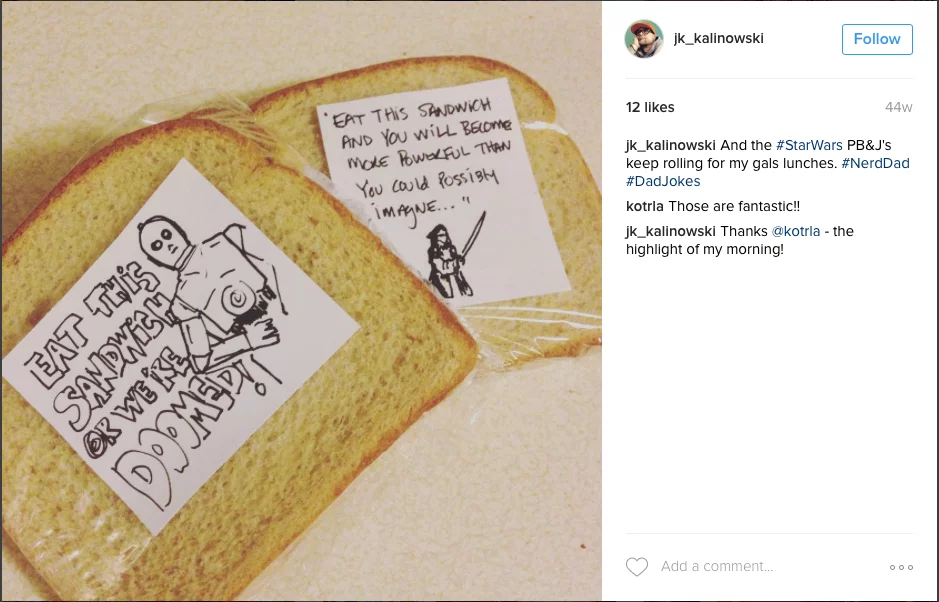 EAT THIS
SANDWICH
OR WE'RE
DOOMED!
"EAT THIS SANDWICH
AND YOU WILL BECOME
MORE POWERFUL THAN
YOU COULD POSSIBLY
IMAGINE..."
jk_kalinowski
Follow
12 likes
44w
jk_kalinowski And the #StarWars PB&J's
keep rolling for my gals lunches. #NerdDad
#DadJokes
kotrla Those are fantastic!!
jk_kalinowski Thanks @kotrla - the
highlight of my morning!
Add a comment...